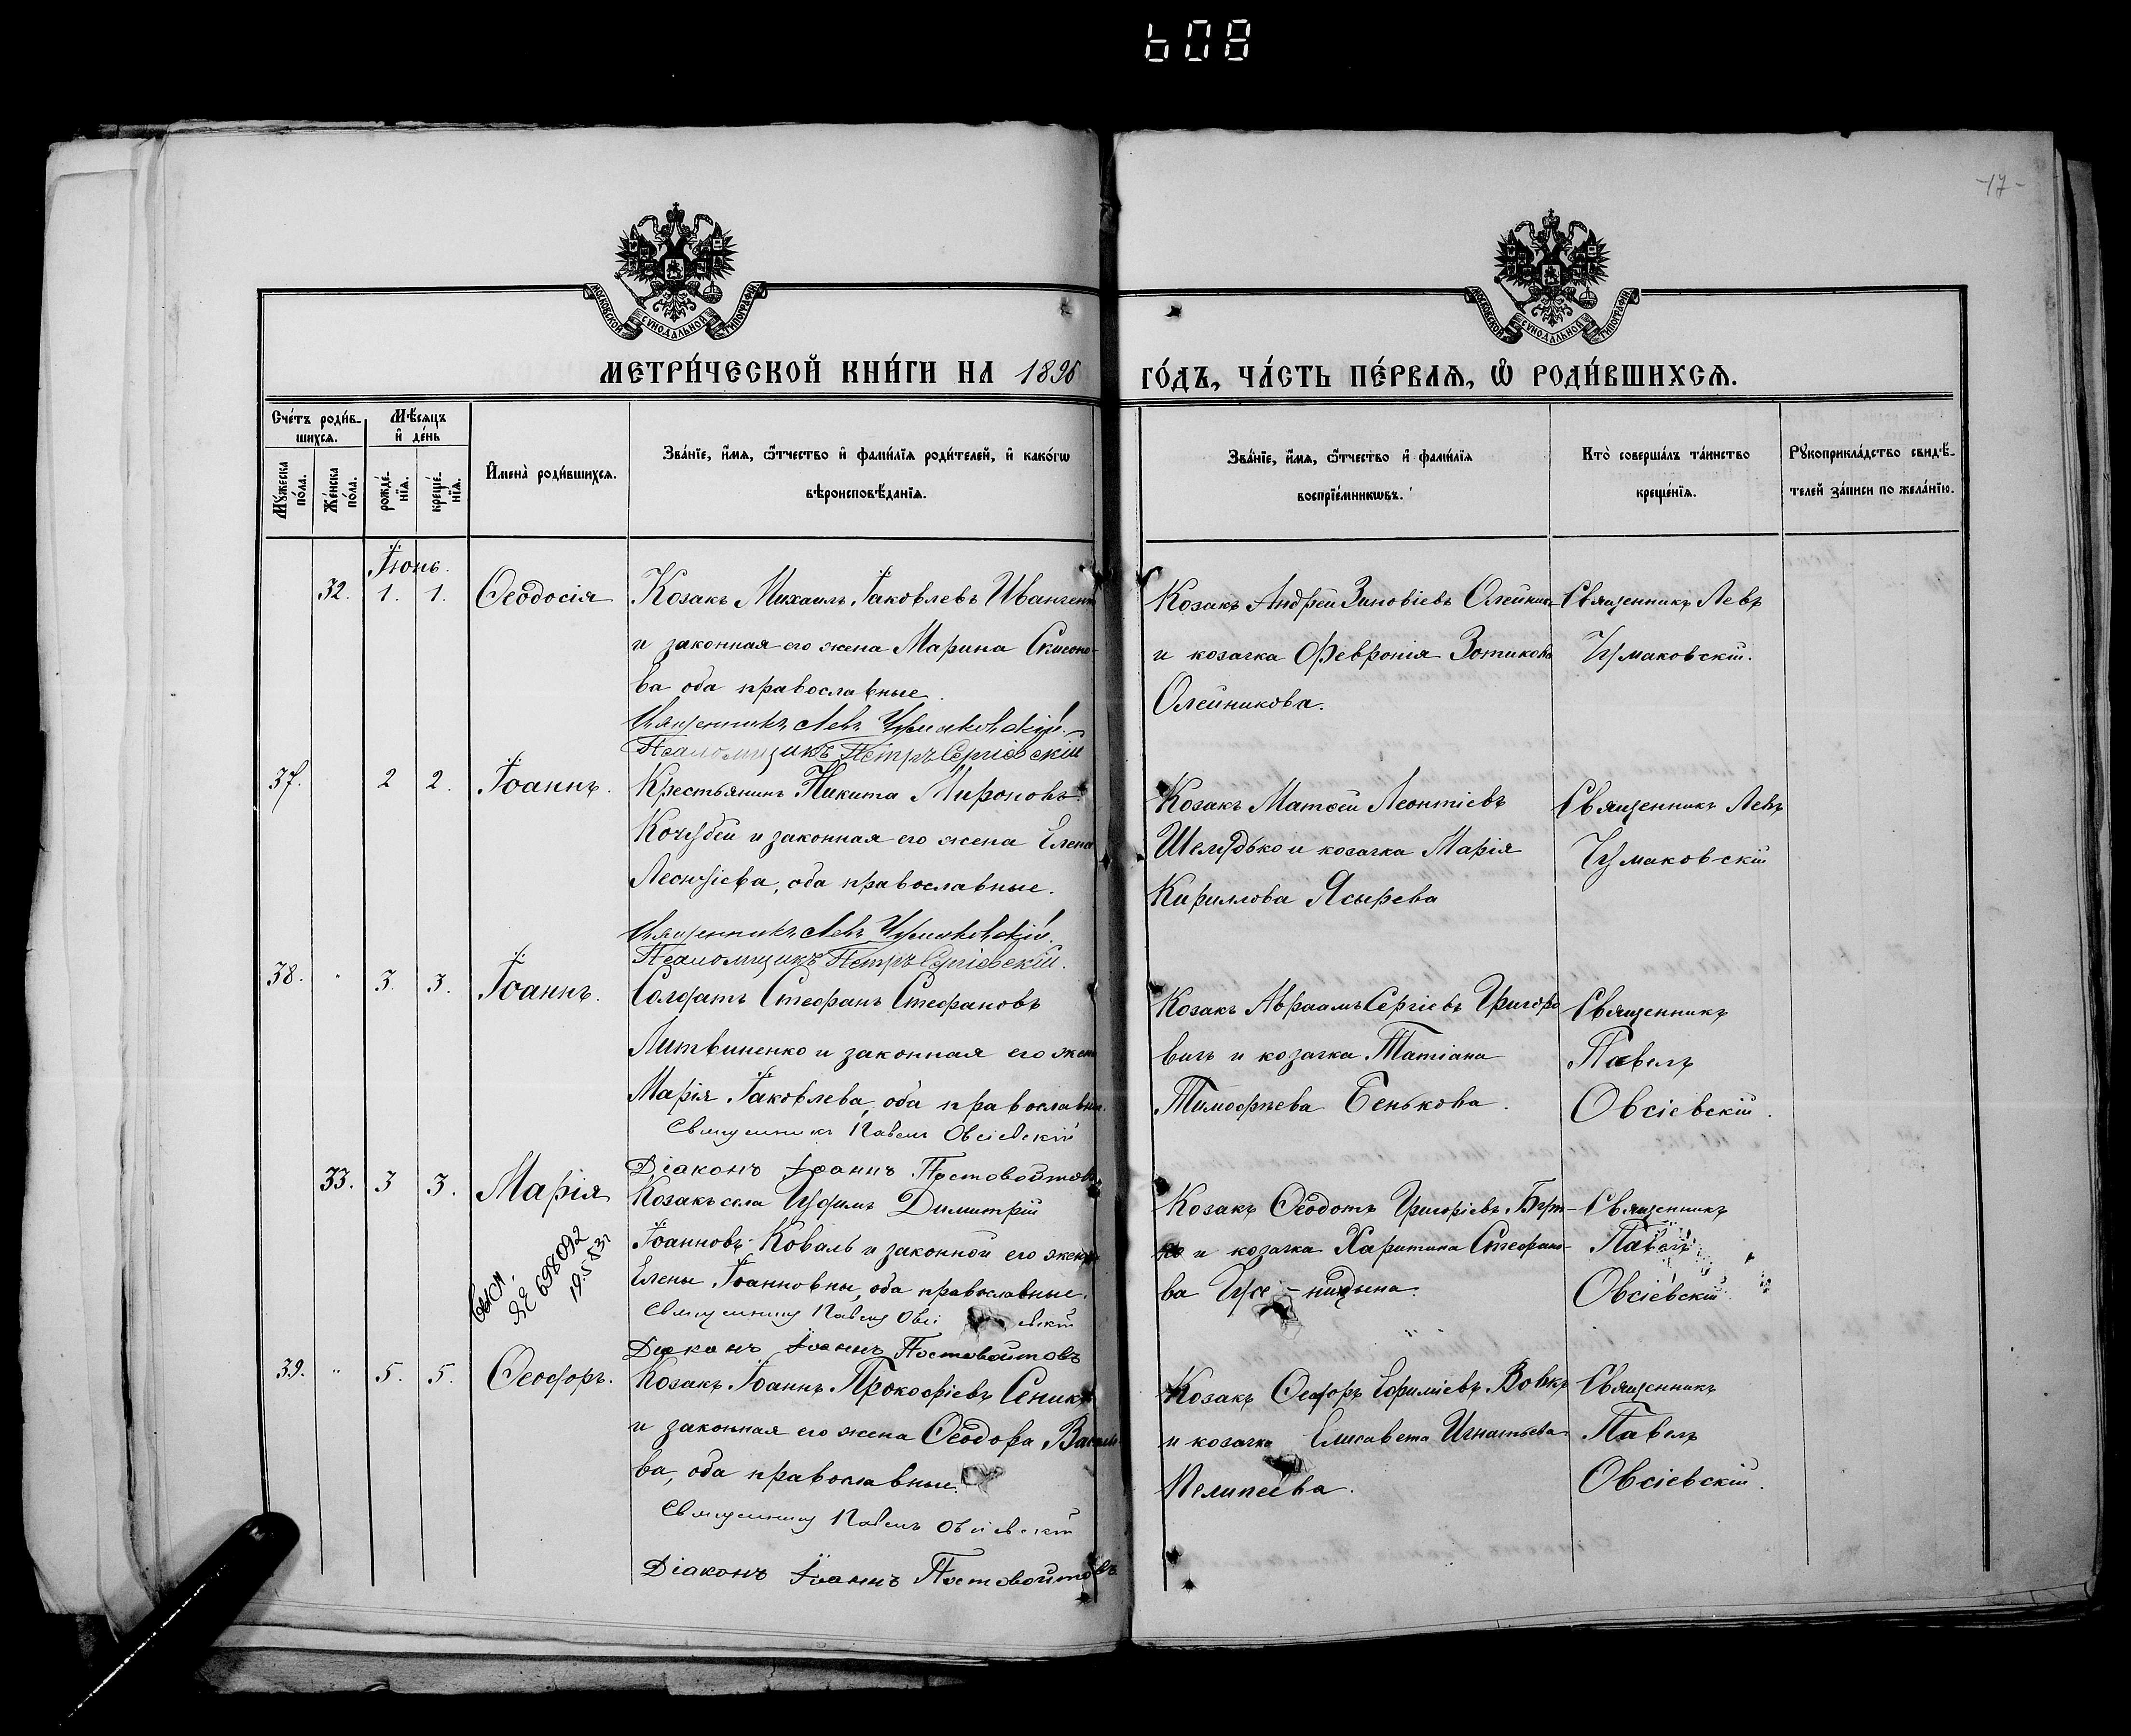 608
-17-
МОСКОВСКОЙ СѴНОДАЛЬНОЙ ТИПОГРАФІИ
МОСКОВСКОЙ СѴНОДАЛЬНОЙ ТИПОГРАФІИ
МЕТРИ́ЧЕСКОЙ КНИ́ГИ НА 1896
ГО́ДЪ, ЧА́СТЬ ПЕ́РВАѦ, Ѡ҆ РОДИ́ВШИХСѦ.
Сче́тъ роди́в-
шихсѧ.
Мѣ́сѧцъ
и҆ де́нь
Мꙋжеска
по́ла.
Же́нска
по́ла.
рожде́-
нїѧ.
креще́-
нїѧ.
И҆мена̀ роди́вшихсѧ.
Зва́нїе, и҆́мѧ, ѻ҆́тчество и҆ фами́лїѧ роди́телей, и҆ како́гѡ
вѣроисповѣ́данїѧ.
Зва́нїе, и҆́мѧ, ѻ҆́тчество и҆ фами́лїѧ
воспрїе́мникѡвъ.
Кто̀ соверша́лъ та́инство
креще́нїѧ.
Рꙋкоприкла́дство свидѣ́-
телей за́писи по жела́нїю.
Іюнь.
32. 1. 1. Ѳеодосія
Козакъ Михаилъ Іаковлевъ Иванченк
и законная его жена Марина Симоно-
ва оба православные.
Священникъ Левъ Чумаковскій.
Псаломщикъ Петръ Сергіевскій
Козакъ Андрей Зиновіевъ Олейник-
и козачка Февронія Зотикова
Олейникова.
Священникъ Левъ
Чумаковскій.
37. 2 2. Іоаннъ.
Крестьянинъ Никита Мироновъ
Кочубей и законная его жена Елена
Леонтіева, оба православные.
Священникъ Левъ Чумаковскій.
Псаломщикъ Петръ Сергіевскій.
Козакъ Матѳей Леонтіевъ
Шелудько и козачка Марія
Кириллова Ясырева
Священникъ Левъ
Чумаковскій
38. " 3. 3. Іоаннъ.
Солдатъ Стефанъ Стефановъ
Литвиненко и законная его жен
Марія Іаковлева, оба православны.
Священникъ Павелъ Овсіевскій
Діаконъ Іоаннъ Постовойтовъ
Козакъ Авраамъ Сергіевъ Григоро
вичъ и козачка Татіана
Тимофѣева Бенькова.
Священникъ
Павелъ
Овсіевскій.
33. 3 3. Марія
Козакъ села Димитрій
Іоанновъ Коваль и законной его жены
Елены Іоанновны, оба православные.
Священникъ Павелъ Овсі евскій
Діаконъ Іоаннъ Постовойтовъ
Козакъ Ѳеодотъ Григорієвъ Бут-
ко и козачка Харитина Стефано-
ва
Священникъ
Павелъ
Овсіевскій
ЯЕ 698092
19.5.53г
39. " 5. 5. Ѳеодоръ.
Козакъ Іоаннъ Прокофіевъ Сеникъ
и законная его жена Ѳеодора Василь
ва, оба православные.
Священникъ Павелъ Овсіевскій
Діаконъ Іоаннъ Постовойтовъ
Козакъ Ѳеодоръ Ефиміевъ Вовкъ
и козачка Елисавета Игнатьева
Пелипеева.
Священникъ
Павелъ
Овсіевскій.